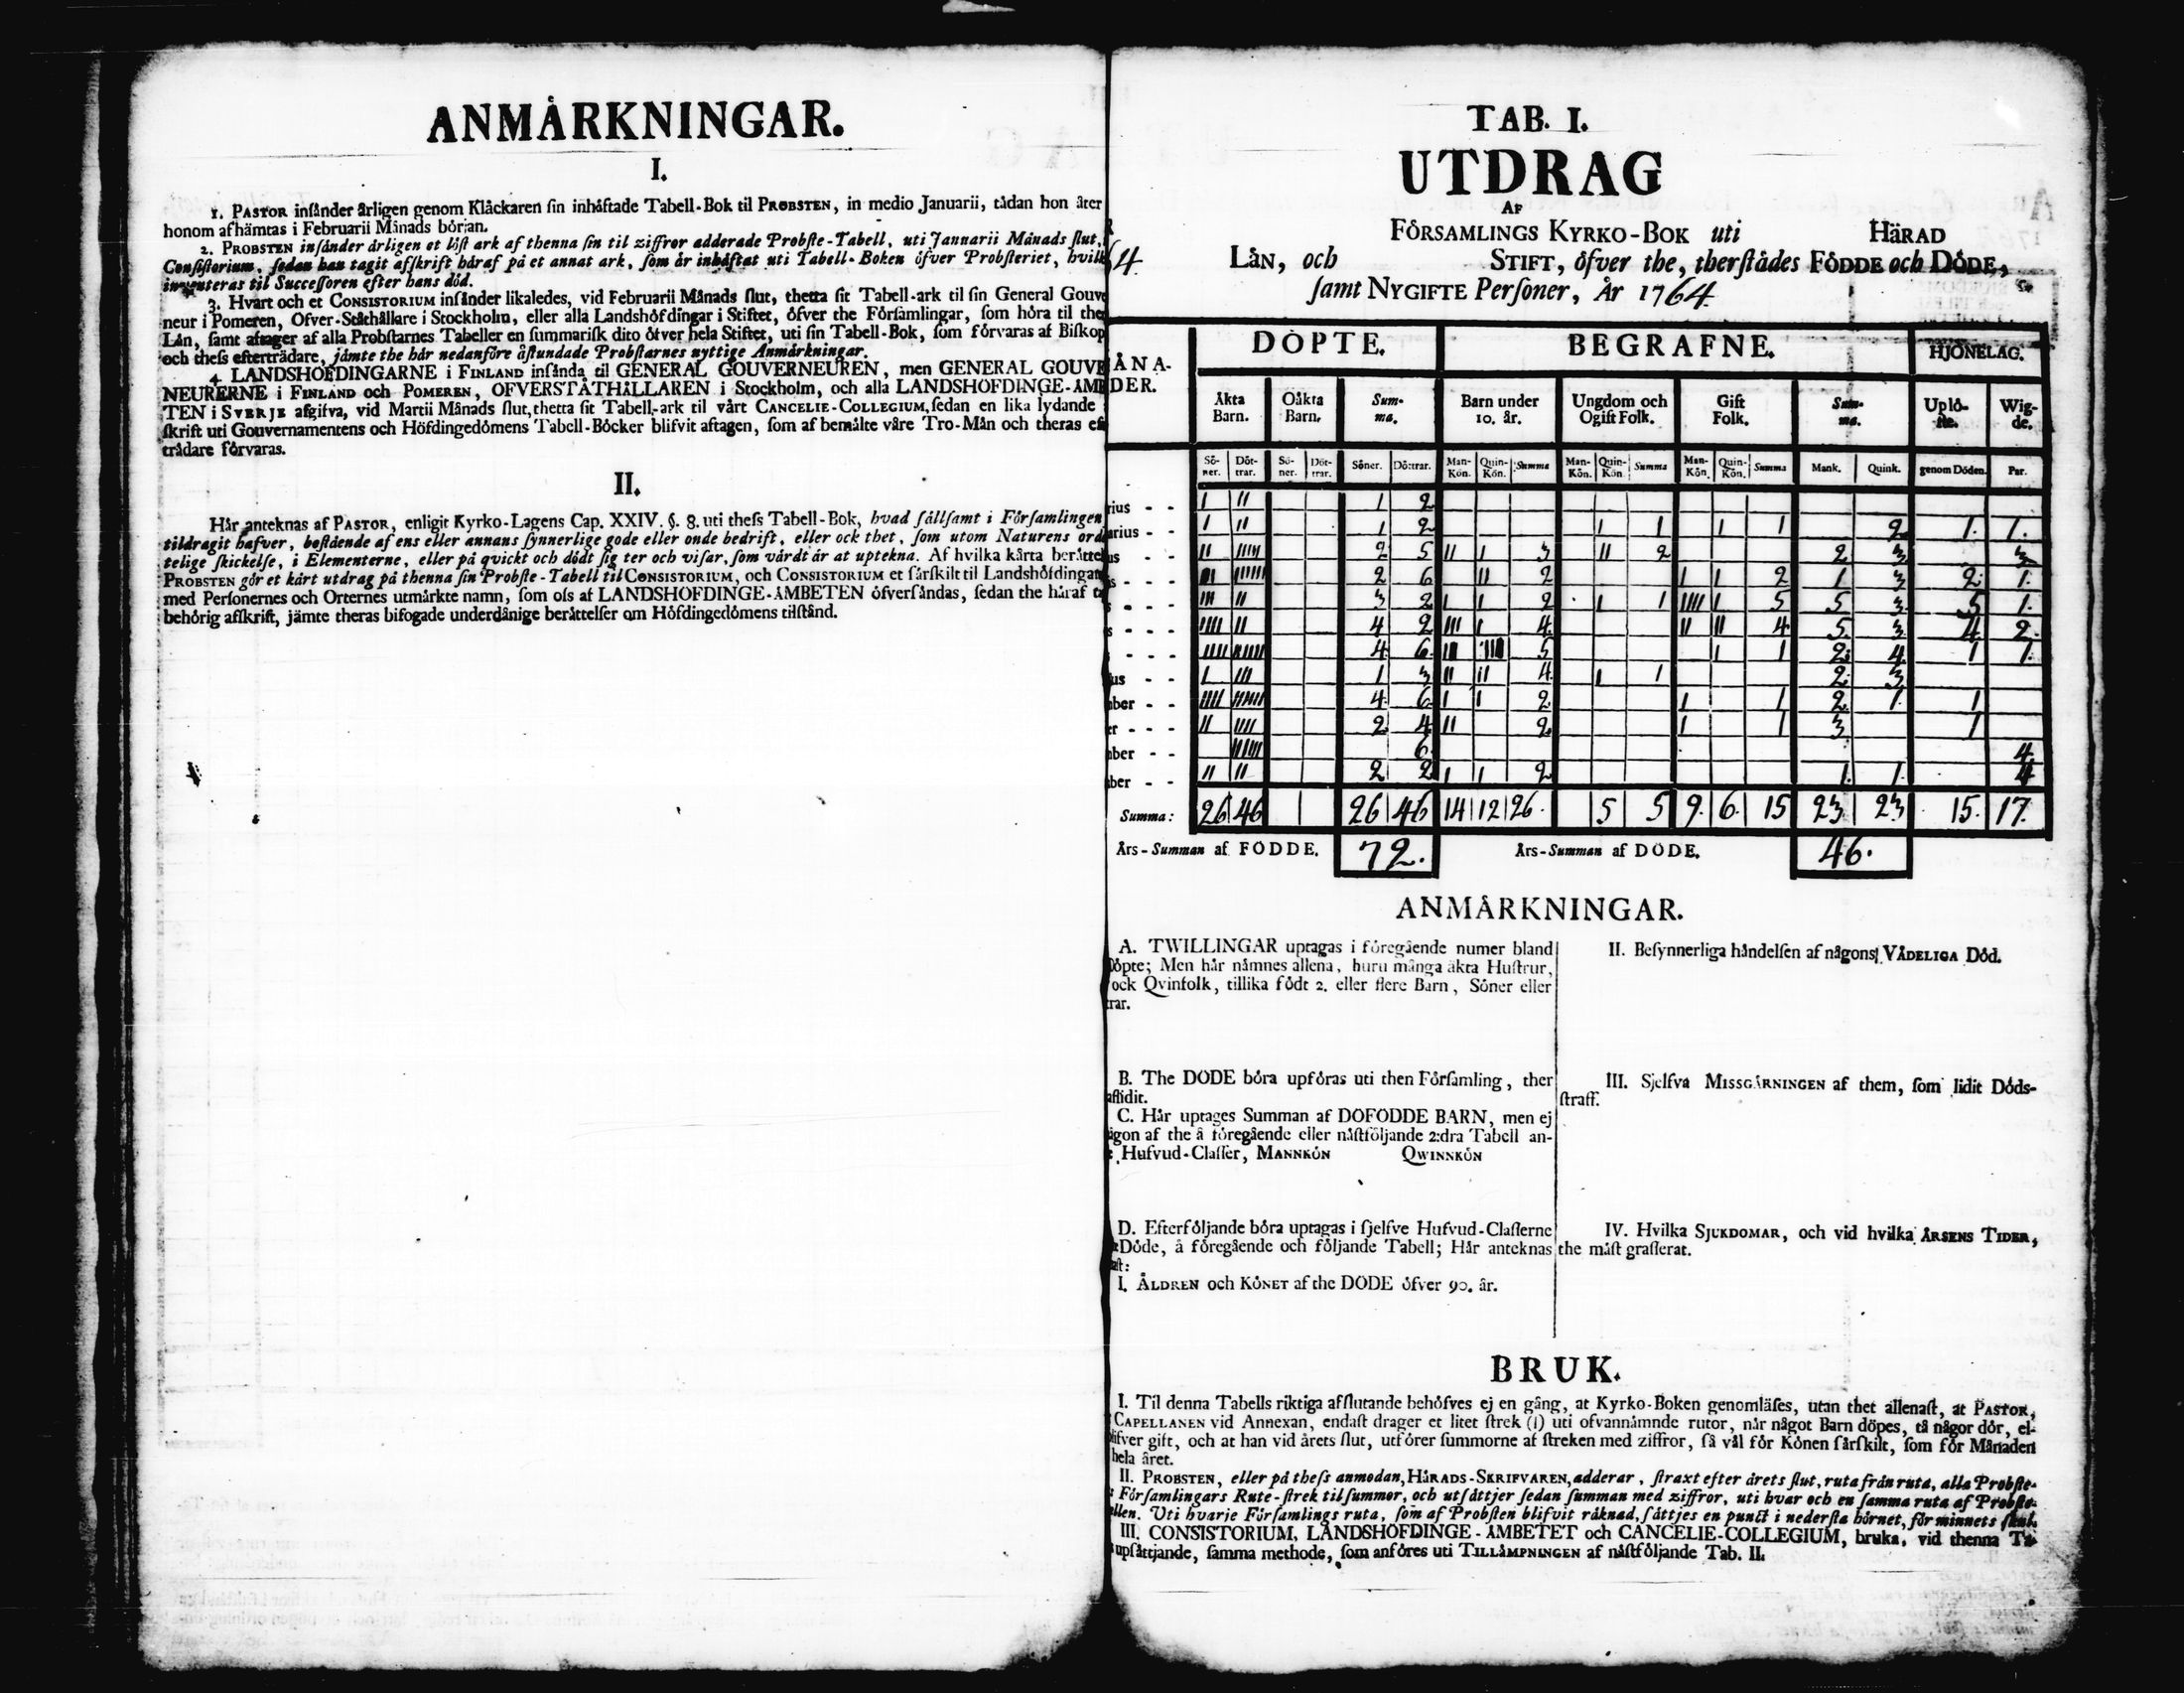 ANMÅRKNINGAR.
I.
1. PASTOR insånder årligen genom Klåckaren sin inhåftade Tabell-Bok til PROBSTEN, in medio Januarii, tådan hon åter
honom afhämtas i Februarii Månads början.
2. PROBSTEN insånder årligen et löst ark af thenna sin til ziffror adderade Probste-Tabell, uti Januarii Månads slut,
Consistorium, sedan han tagit afskrift håraf på et annat ark, som år inhåftat uti Tabell-Boken öfver Probsteriet, hvilk
til Successoren efter hans död.
3. Hvart och et CONSISTORIUM insånder likaledes, vid Februarii Månads slut, thetta sit Tabell-ark til sin General Gouve
neur i Pomeren, Ofver-Ståthållare i Stockholm, eller alla Landshöfdingar i Stiftet, öfver the Församlingar, som höra til the
Lån, samt aftager af alla Probstarnes Tabeller en summarisk dito öfver hela Stiftet, uti sin Tabell-Bok, som förvaras af Biskop
och thess efterträdare, jämte the hår nedanföre åstundade Probstarnes nyttige Anmårkningar.
4. LANDSHOFDINGARNE i FINLAND insånda til GENERAL GOUVERNEUREN, men GENERAL GOUVE
NEURERNE i FINLAND och POMEREN, OFVERSTÅTHÅLLAREN i Stockholm, och alla LANDSHOFDINGE-ÅMB
TEN i SVERJE afgifva, vid Martii Månads slut, thetta sit Tabell-ark til vårt CANCELIE-COLLEGIUM, sedan en lika lydande
skrift uti Gouvernamentens och Höfdingedömens Tabell-Böcker blifvit aftagen, som af bemålte våre Tro-Mån och theras ef
trådare förvaras.
II.
Hår anteknas af PASTOR, enligit Kyrko-Lagens Cap. XXIV. §. 8. uti thess Tabell-Bok, hvad sållsamt i Församlingen
tildragit hafver, bestående af ens eller annans synnerlige gode eller onde bedrift, eller ock thet, som utom Naturens ord
telige skickelse, i Elementerne, eller på quickt och dödt sig ter och visar, som vårdt år at uptekna. Af hvilka kårta beråttel
PROBSTEN gör et kårt utdrag på thenna sin Probste-Tabell til CONSISTORIUM, och CONSISTORIUM et sårskilt til Landshöfdingar
med Personernes och Orternes utmårkte namn, som oss af LANDSHOFDINGE-ÅMBETEN öfversåndas, sedan the håraf t
behörig afskrift, jämte theras bifogade underdånige beråttelser om Höfdingedömens tilstånd.
TAB. I.
UTDRAG
AF
FÖRSAMLINGS KYRKO-BOK uti HÄRAD
64. LÅN, och STIFT, öfver the, therstådes FÖDDE och DÖDE,
samt NYGIFTE Personer, År 1764.
DÖPTE. BEGRAFNE. HJONELAG.
ÅNA-
DER.
Åkta Barn. Oåkta Barn. Summa. Barn under 10. år. Ungdom och Ogift Folk. Gift Folk. Summa. Uplöste. Wigde.
Söner. Döttrar. Söner. Döttrar. Söner. Döttrar. Man-Kön. Quin-Kön. Summa Man-Kön. Quin-Kön Summa Man-Kön. Quin-Kön. Summa Mank. Quink. genom Döden. Par.
rius - - I II 1 2
arius - - I II 1 2 I 1 I 1 2 1. 1.
us - - II IIIII 2 5 II I 3 II 2 2 3 3
is - - - II IIIIII 2 6 II 2 I I 2 1 3 2. 1.
s - - - III II 3 2 I I 2 I 1 IIII I 5 5 3 5 1.
s - - - IIII II 4 2 III I 4 II II 4 5 3 4 2.
- - - IIII IIIIII 4 6 5 I 1 2 4 1 1.
us - - I III 1 3 II II 4 I 1 2 3
mber - - IIII IIIIII 4 6 I I 2 I 1 2 1 1
er - - - II IIII 2 4 II 2 I 1 3 1
mber - - IIIIII 6 4
mber - - II II 2 2 I I 2 1. 1. 4
Summa: 26 46 26 46 14 12 26. 5 5 9. 6. 15 23 23 15. 17.
Års-Summan af FÖDDE. 72. Års-Summan af DÖDE. 46.
ANMÅRKNINGAR.
A. TWILLINGAR uptagas i föregående numer bland
Döpte; Men hår nåmnes allena, huru många åkta Hustrur,
ock Qvinfolk, tillika födt 2. eller flere Barn, Söner eller
trar.
B. The DÖDE böra upföras uti then Församling, ther
aflidit.
C. Hår uptages Summan af DÖFÖDDE BARN, men ej
ågon af the å föregående eller nåstföljande 2:dra Tabell an-
Hufvud-Classer, MANNKÖN QWINNKÖN
D. Efterföljande böra uptagas i sjelfve Hufvud-Classerne
Döde, å föregående och följande Tabell; Hår anteknas
ast:
I. ÅLDREN och KÖNET af the DÖDE öfver 90. år.
II. Besynnerliga håndelsen af någons VÅDELIGA Död.
III. Sjelfva MISSGÅRNINGEN af them, som lidit Döds-
straff.
IV. Hvilka SJUKDOMAR, och vid hvilka ÅRSENS TIDER,
the måst grasserat.
BRUK.
I. Til denna Tabells riktiga afslutande behöfves ej en gång, at Kyrko-Boken genomläses, utan thet allenast, at PASTOR,
CAPELLANEN vid Annexan, endast drager et litet strek (I) uti ofvannåmnde rutor, når något Barn döpes, tå någor dör, el-
blifver gift, och at han vid årets slut, utförer summorne af streken med ziffror, så vål för Könen sårskilt, som för Månaden
hela året.
II. PROBSTEN, eller på thess anmodan, HÅRADS-SKRIFVAREN, adderar, straxt efter årets slut, ruta från ruta, alla Probste-
Församlingars Rute-strek til summor, och utsåttjer sedan summan med ziffror, uti hvar och en samma ruta af Probste-
ellen. Uti hvarje Församlings ruta, som af Probsten blifvit råknad, såttjes en punct i nedersta hörnet, för minnets skul.
III. CONSISTORIUM, LANDSHOFDINGE-ÅMBETET och CANCELIE-COLLEGIUM, bruka, vid thenna Ta-
upsåttjande, samma methode, som anföres uti TILLÅMPNINGEN af nåstföljande Tab. II.